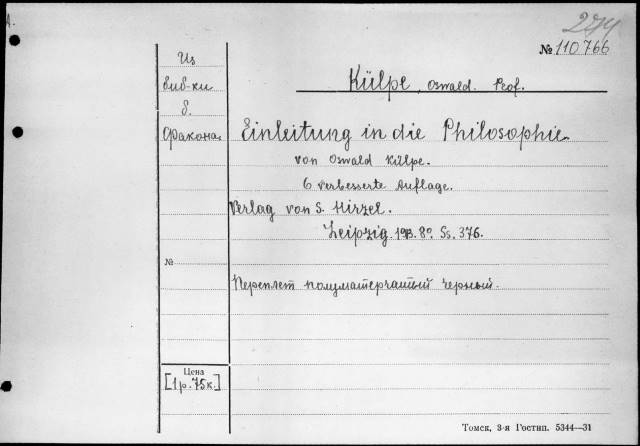 А.
274
№ 110766
Из
биб-ки
б.
Факона.
Külpe, Oswald. Prof.
Einleitung in die Philosophie
von Oswald Külpe.
6 verbesserte Auflage.
Verlag von S. Hirzel.
Leipzig. 1913. 8º. Ss. 376.
№
Переплет полуматерчатый черный.
Цена
[1 р. 75 к.]
Томск, 3-я Гостип. 5344—31